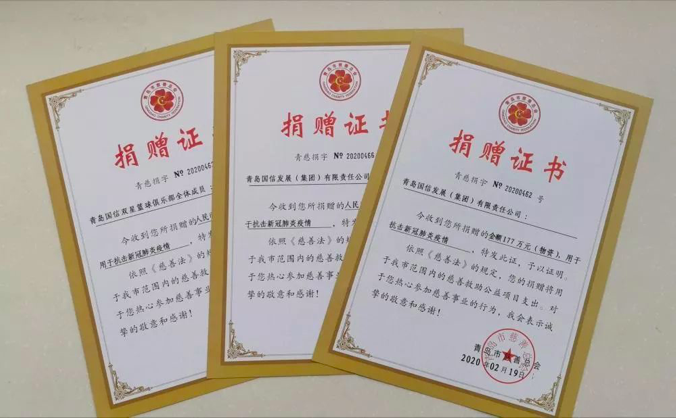 捐赠证书
青慈捐字 № 2020046
青岛国信双星篮球俱乐部全体成员
今收到您所捐赠的人民
用于抗击新冠肺炎疫情
,特发
依照《慈善法》的规
于我市范围内的慈善救
于您热心参加慈善事
挚的敬意和感谢!
捐赠证
青慈捐字 № 20200466
青岛国信发展(集团)有限责任公司
今收到您所捐赠的人民
于抗击新冠肺炎疫情 ,特
依照《慈善法》的规
于我市范围内的慈善救
于您热心参加慈善事
挚的敬意和感谢!
捐赠证书
青慈捐字 № 20200462 号
青岛国信发展(集团)有限责任公司:
今收到您所捐赠的金额177万元(物资),用于
抗击新冠肺炎疫情 ,特发此证,予以证明。
依照《慈善法》的规定,您的捐赠将用
于我市范围内的慈善救助公益项目支出。对
于您热心参加慈善事业的行为,我会表示诚
挚的敬意和感谢!
青岛市慈善总会
2020 年02 月19日